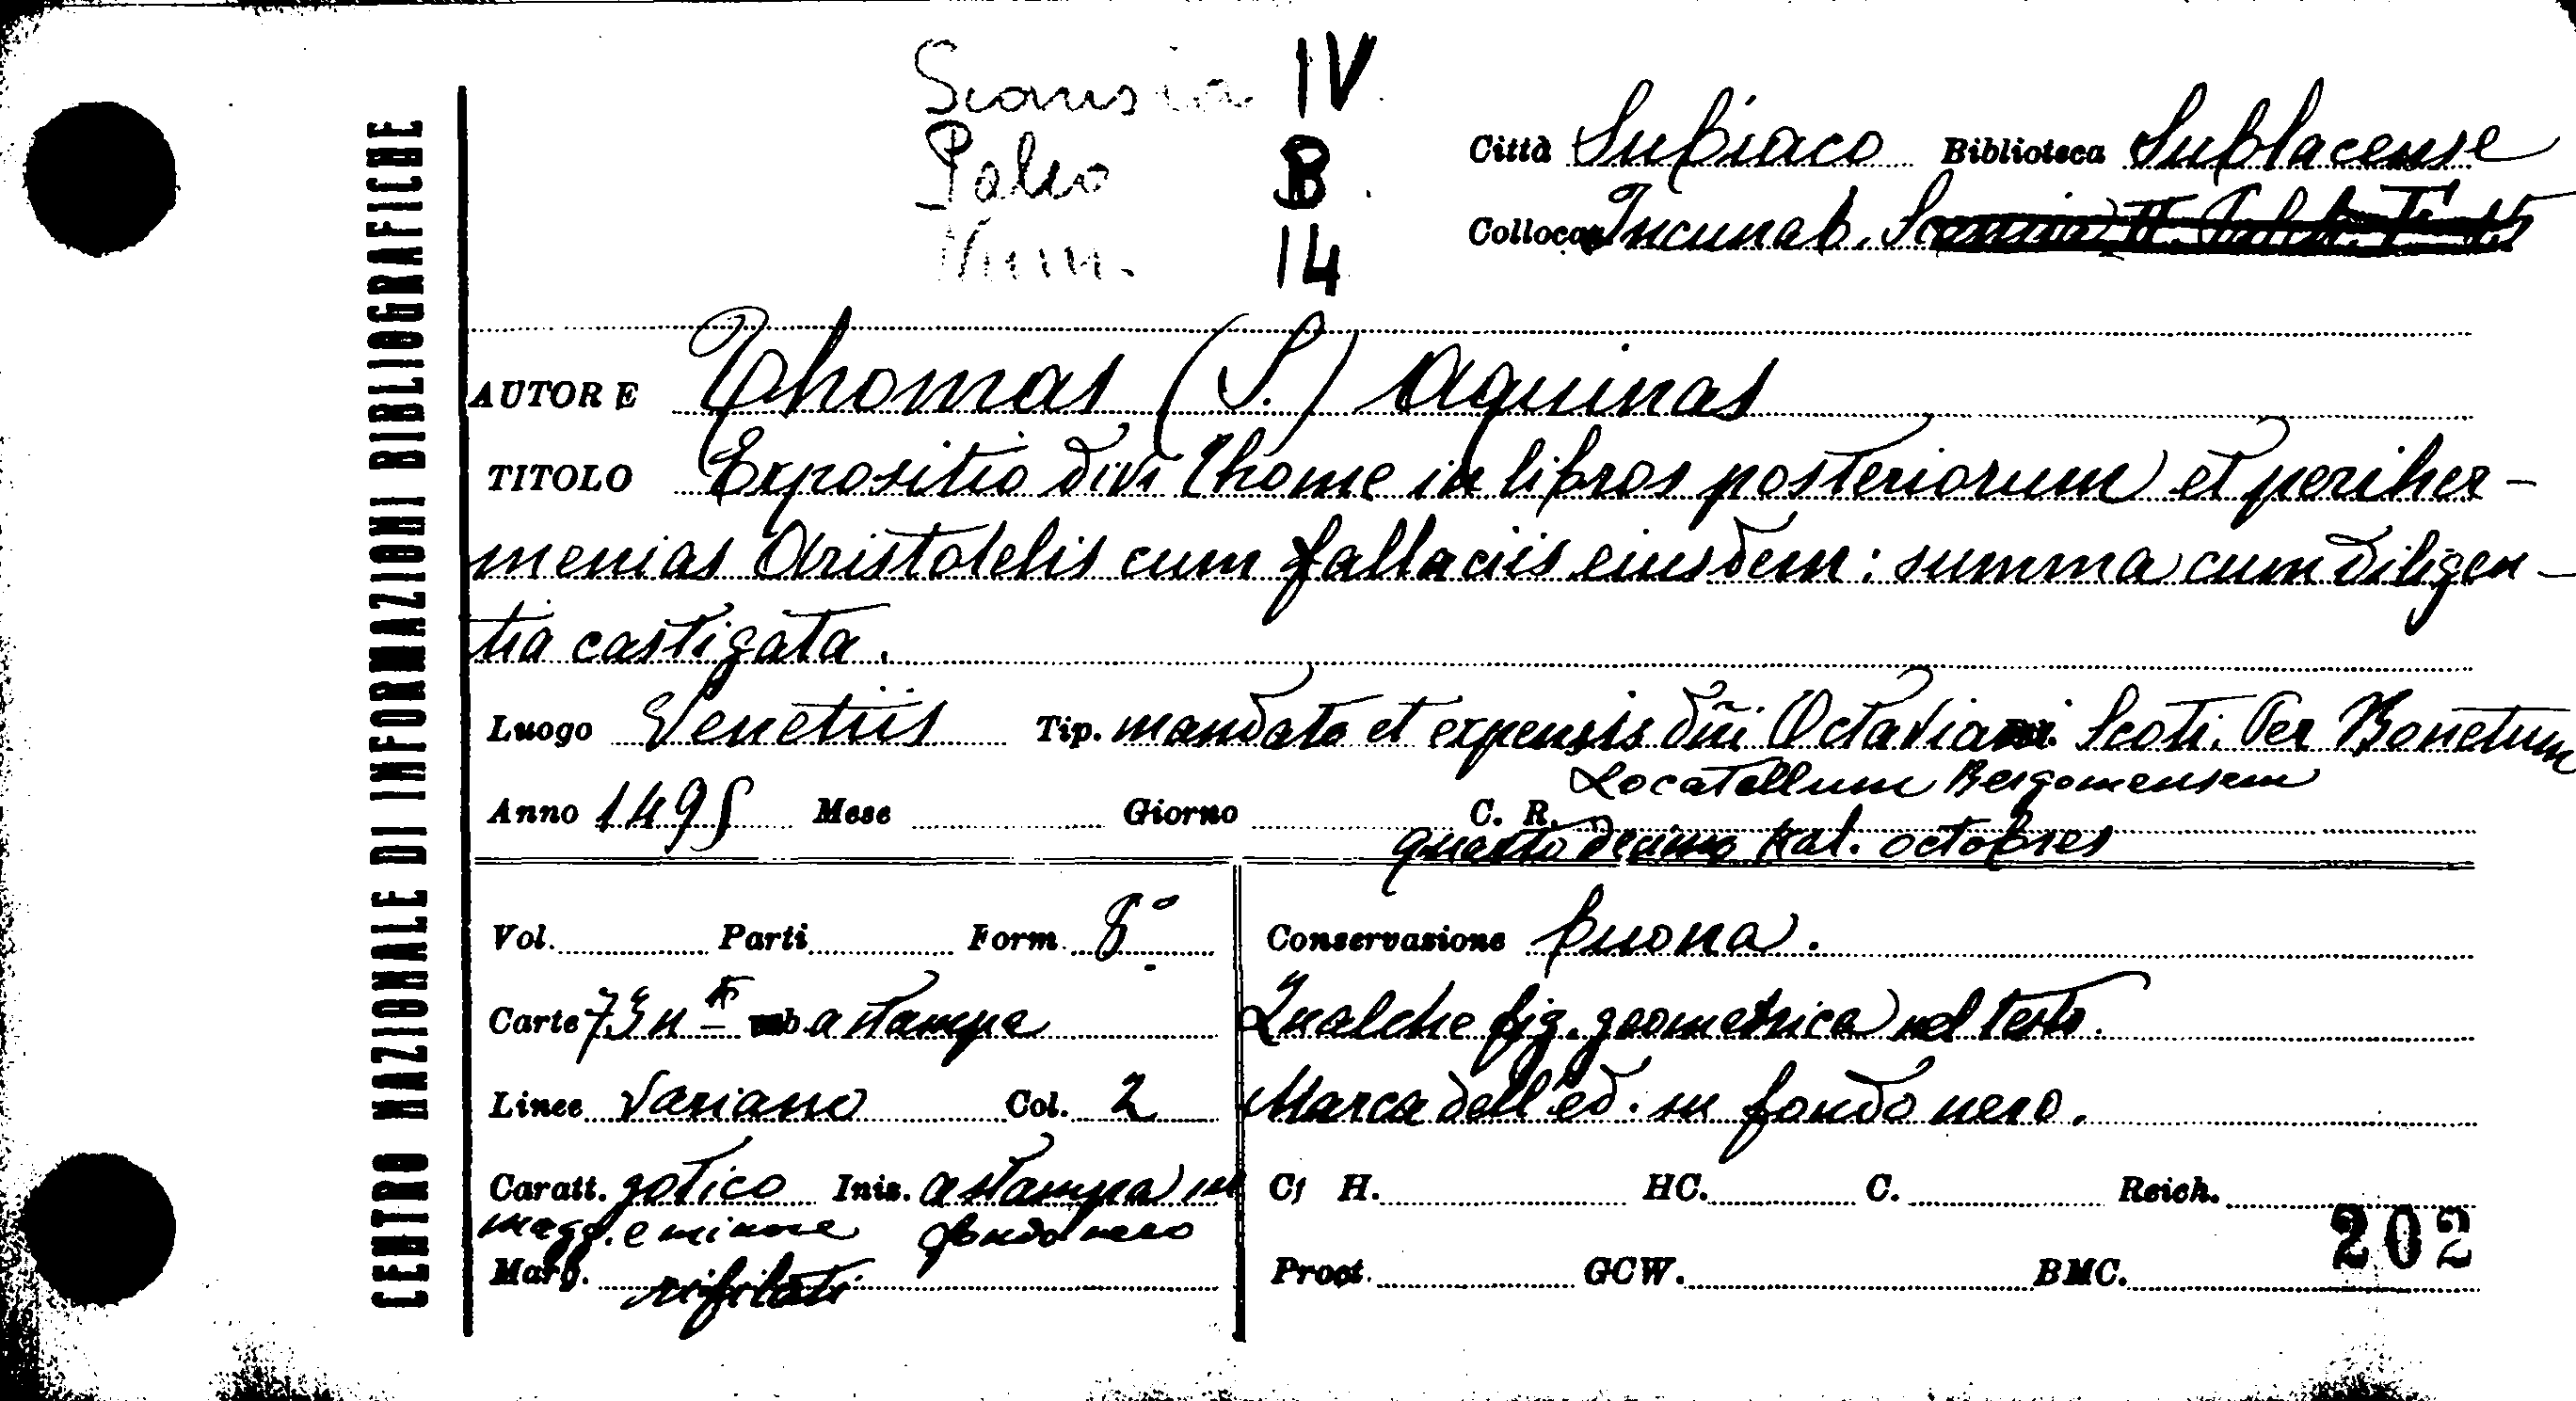 Scansia IV
Palco B
Num. 14
Città Subiaco Biblioteca Sublacense
Colloca Incunab.
AUTORE Thomas (S.) Aquinas
TITOLO Expositio divi Thome in libros posteriorum et periher-
menias Aristotelis cum fallaciis eiusdem: summa cum diligen-
tia castigata.
Luogo Venetiis Tip. mandato et expensis dñi Octaviani Scoti. Per Bonetum
Locatellum Bergomensem
Anno 1495 Mese Giorno C. R.
quarto decimo kal. octobres
Vol. Parti Form. 8°
Conservazione buona.
Carte 73 n a stampa
Qualche fig. geometrica nel testo.
Linee variano Col. 2
Marca dell'ed. su fondo nero.
Caratt. gotico Iniz. a stampa su
magg. e minore fondo nero
Marg. rifilati
Cf H. HC. C. Reich.
202
Proct. GCW. BMC.
CENTRO NAZIONALE DI INFORMAZIONI BIBLIOGRAFICHE